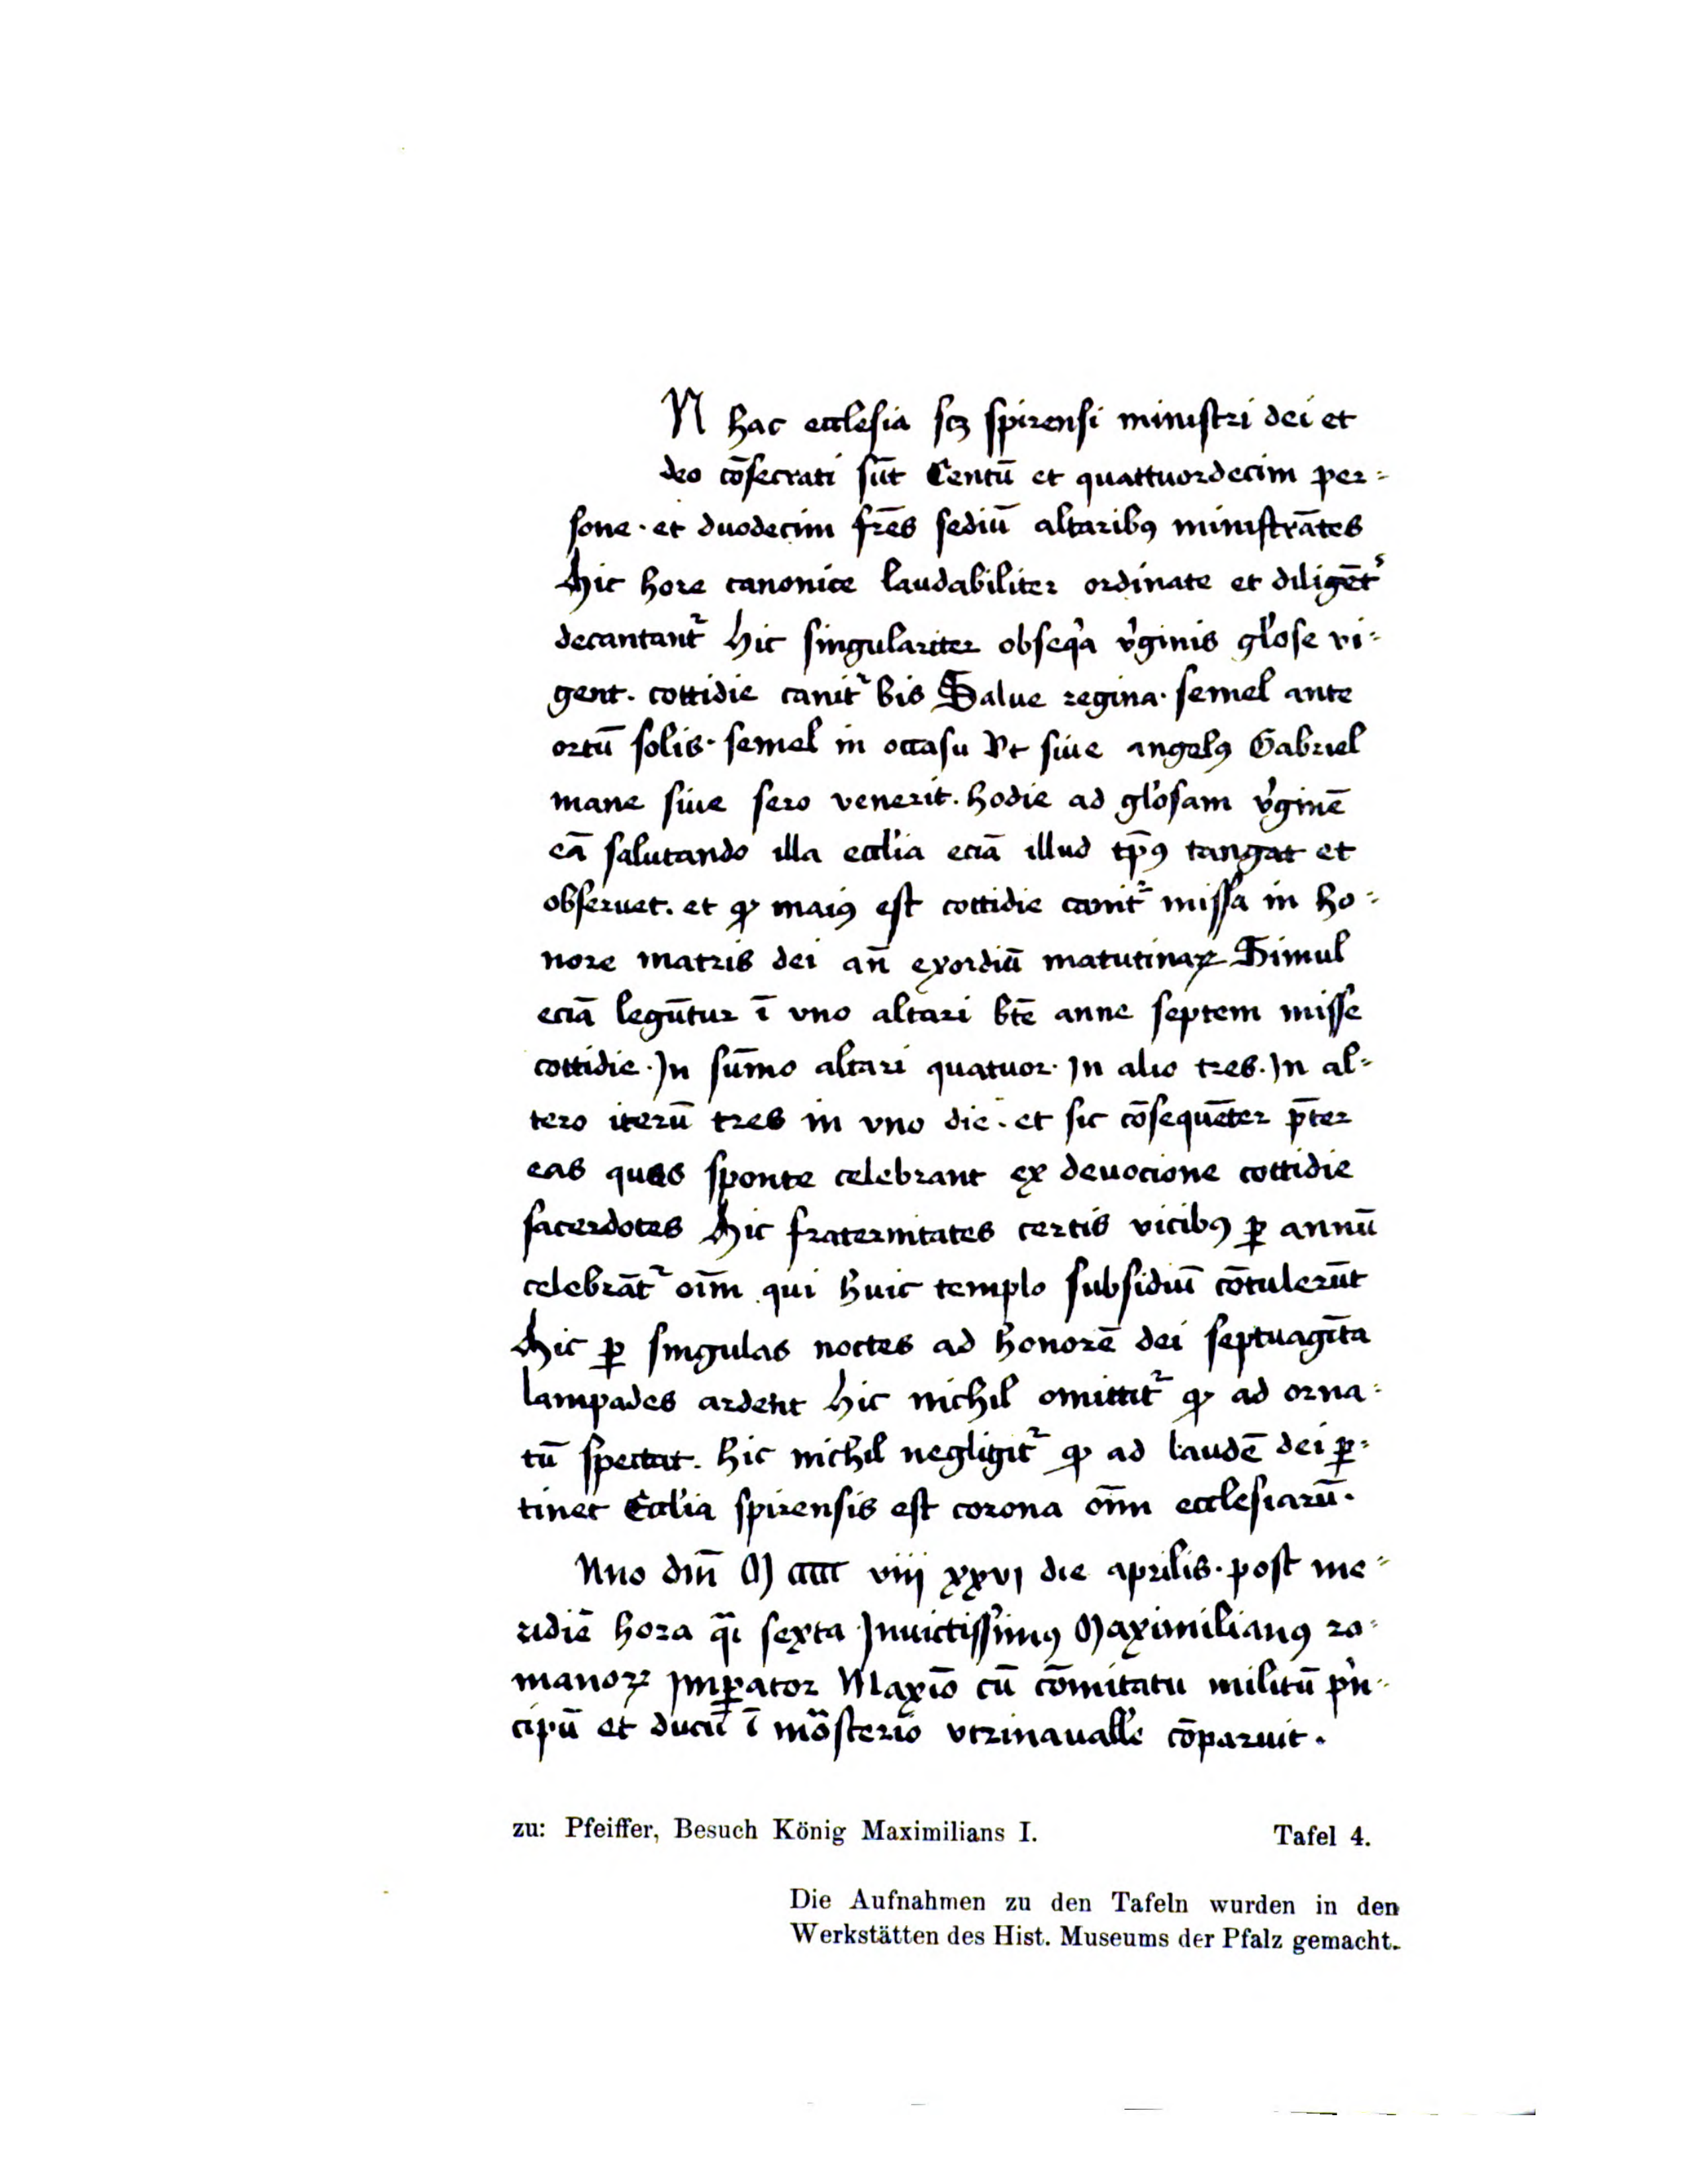 N hac ecclesia scꝫ spirensi ministri dei et
deo cōsecrati sūt Centū et quattuordecim per⸗
sone · et duodecim frēs sediū altaribꝰ ministrātes
Hic hore canonice laudabiliter ordinate et diligēt᾽
decantant᷑ Hic singulariter obseqͥa v͛ginis gl̕ose vi⸗
gent . cottidie canit᷑ bis Salue regina · semel ante
ortū solis · semel in occasu Vt siue angelꝰ Gabriel
mane siue sero venerit . hodie ad gl̕osam v͛ginē
eā salutando illa eccl̕ia eciā illud tp̄ꝰ tangat et
obseruet . et ꝙ maiꝰ est cottidie canit᷑ missa in ho⸗
nore matris dei an̄ exordiū matutinaꝝ Simul
eciā legūtur ī vno altari btē anne septem misse
cottidie · In sūmo altari quatuor · In alio tres . In al⸗
tero iterū tres in vno die · et sic cōsequēter p̄ter
eas quas sponte celebrant ex deuocione cottidie
sacerdotes Hic fraternitates certis vicibꝰ ꝑ annū
celebrāt᷑ oīm qui huic templo subsidiū cōtulerūt
Hic ꝑ singulas noctes ad honorē dei septuagīta
lampades ardent Hic nichil omittit᷑ ꝙ ad orna⸗
tū spectat . Hic nichil negligit᷑ ꝙ ad laudē dei ꝑ⸗
tinet Eccl̕ia spirensis est corona oīm ecclesiarū ·
Nno dm̄ M cccc viii xxvi die aprilis · post me⸗
ridiē hora qᷓi sexta Inuictissimꝰ Maximilianꝰ ro⸗
manoꝝ Imꝑator Maxīo cū cōmitatu militū pͥn⸗
cipū et ducū ī mōsterio vtrinauall̕e cōparuit .
zu: Pfeiffer, Besuch König Maximilians I. Tafel 4.
Die Aufnahmen zu den Tafeln wurden in den
Werkstätten des Hist. Museums der Pfalz gemacht.